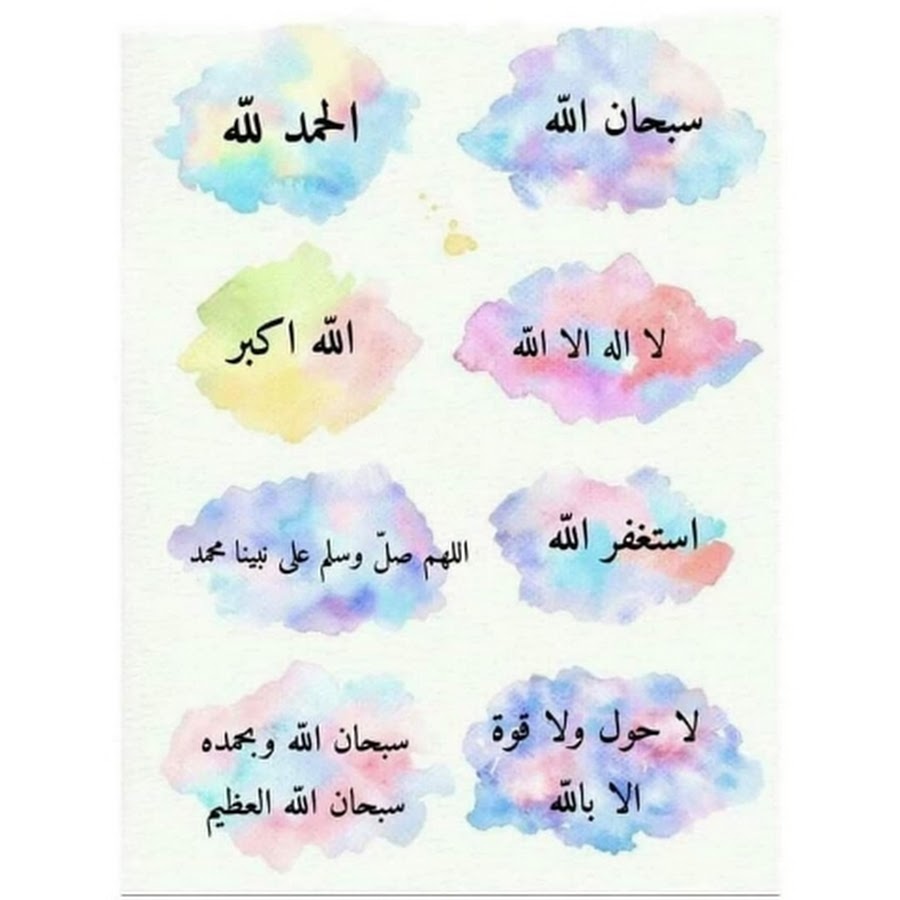 سبحان الله
الحمد لله
لا اله الا الله
الله اكبر
استغفر الله
اللهم صلّ وسلم على نبينا محمد
لا حول ولا قوة
الا بالله
سبحان الله وبحمده
سبحان الله العظيم